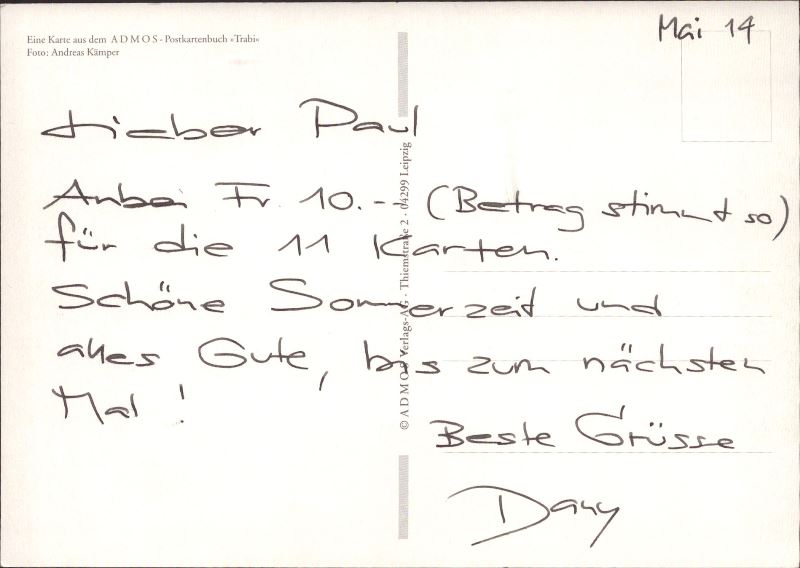 Eine Karte aus dem ADMOS-Postkartenbuch »Trabi«
Foto: Andreas Kämper
Mai 14
Lieber Paul
Anbei Fr. 10.-- (Betrag stimmt so)
für die 11 Karten.
Schöne Sommerzeit und
alles Gute, bis zum nächsten
Mal!
Beste Grüsse
Dany
© ADMOS Verlags-AG · Thiemstraße 2 · 04299 Leipzig